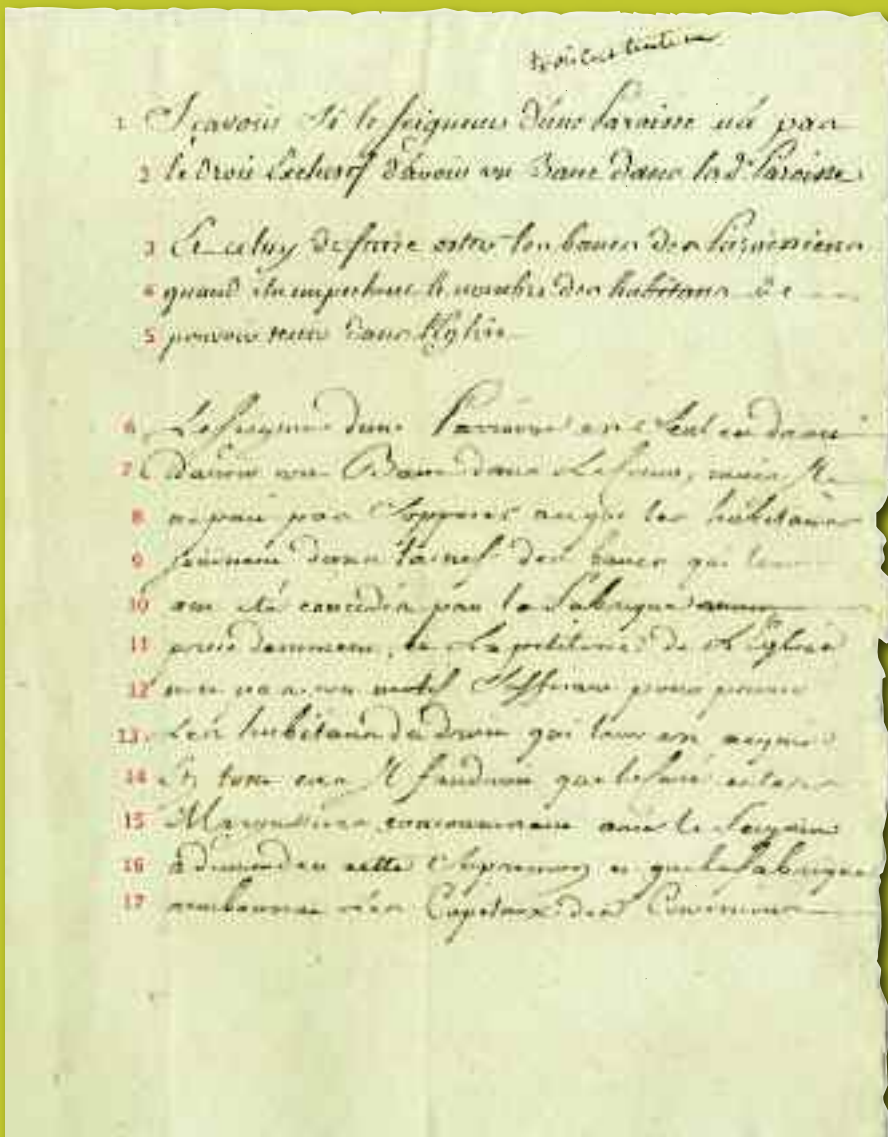 1 Sçavoir Si le seigneur d'une Paroisse na pas
2 le droit Exclusif d'avoir un Banc dans lad.^e Paroisse
3 Et celuy de faire oster les bancs des Paroissiens
4 quand ils empechent le nombre des habitans de
5 pouvoir tenir dans l'Eglise
6 Le seigneur d'une Paroisse est Seul en droit
7 d'avoir un Banc dans Le Coeur, mais Il
8 ne peut pas S'opposer a ce que les habitans
9 jouissent dans la nef des bancs qui leur
10 ont été concédés par la Fabrique
11 precedemment, et La petitesse de L'Eglise
12 n'est pas un motif Suffisant pour priver
13 Les habitans du droit qui leur est acquis
14 En tout cas Il faudroit que le Curé et les
15 Marguilliers concourussent avec le Seigneur
16 a demander cette Supression et que la Fabrique
17 remboursat les Capitaux des Concessions